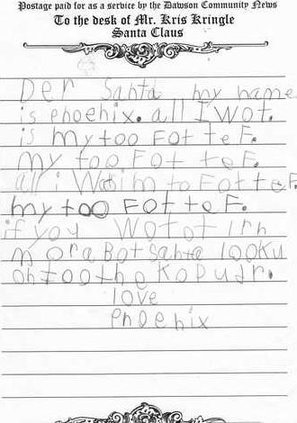 Postage paid for as a service by the Dawson Community News
To the desk of Mr. Kris Kringle
Santa Claus
Der Santa my name
is phoenix. all I wot.
is my too FOt te F.
my too FOt te F.
all i Wot im to Fot te F.
my too FOt te F.
if you Wot ot lrn
mor a Bot Santa looku
on too the Kopudr.
love
phoenix